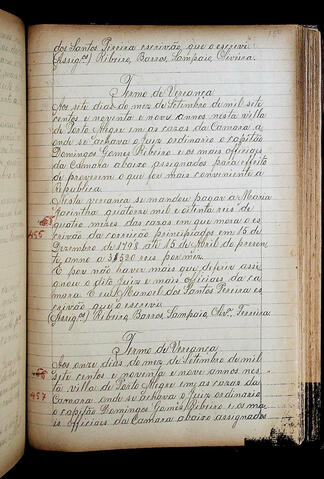 dos Santos Pereira escrivão, que o escrevi
(Assigos) Ribeiro, Barros, Sampaio, Oliveira.
Termo de Vereança
Aos sete dias do mez de Setembro de mil sete
centos e noventa e nove annos nesta villa
de Porto Alegre em as cazas da Camara a
onde se achava o Juiz ordinario o capitão
Domingos Gomes Ribeiro e os mais officiaes
da Camara abaixo assignados para effeito
de proverem o que for mais conveniente a
Republica.
Nesta vereança se mandou pagar a Maria
Jacintha quatorse mil e oitenta reis de
quatro mezes das cazas em que mora o es
crivão da correição principiados em 15 de
Dezembro de 1798 até 15 de Abril do presen
te, anno a 3$520 reis por mez.
455
E por não haver mais que deferir assi
gnou o dito Juiz e mais officiaes da ca
mara. E eu Manoel dos Santos Pereira es
crivão que o escrevi
(Assigos) Ribeiro, Barros, Sampaio, Olivra, Ferreira.
Termo de Vereança
Aos onze dias do mez de Setembro de mil
sete centos e noventa e nove annos nes
ta villa de Porto Alegre em as cazas da
457
Camara onde se achava o Juiz ordinario
o capitão Domingos Gomes Ribeiro e os ma
is officiaes da Camara abaixo assignados